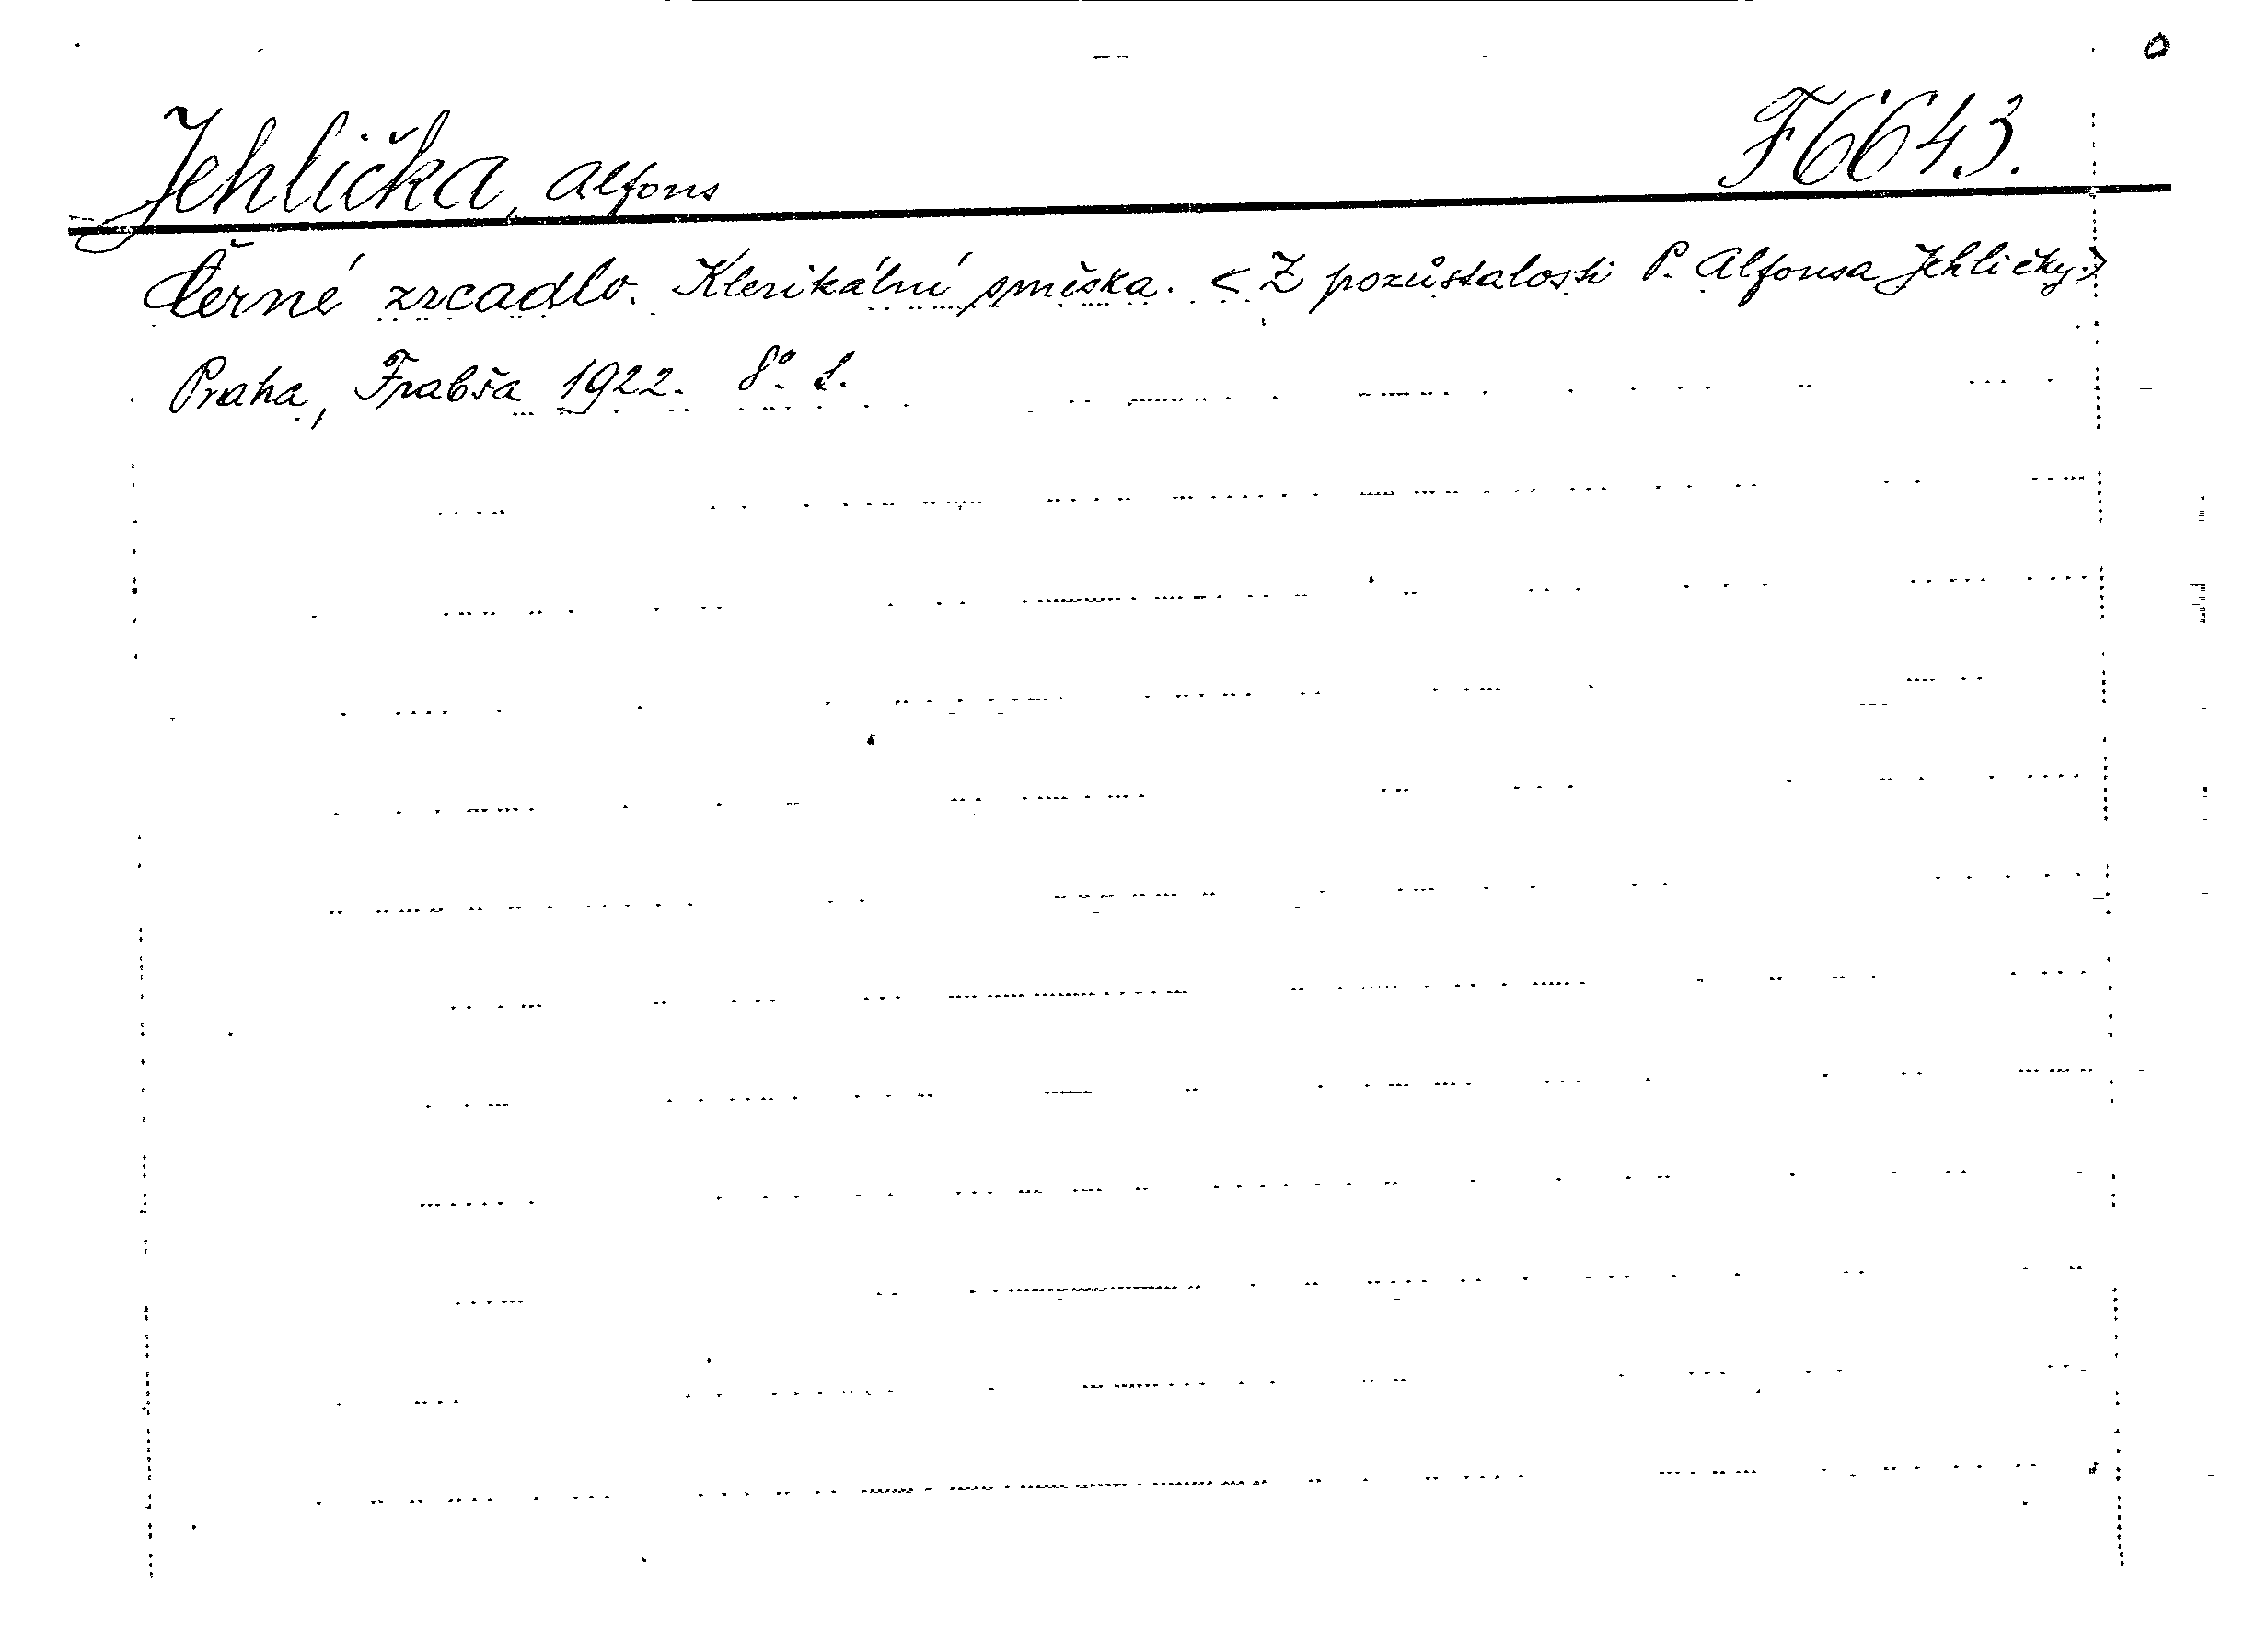 Jehlička, Alfons F6643.
Černé zrcadlo. Klerikální směska. < Z pozůstalosti P. Alfonsa Jehličky.>
Praha, Frabša 1922. 8°. 1.